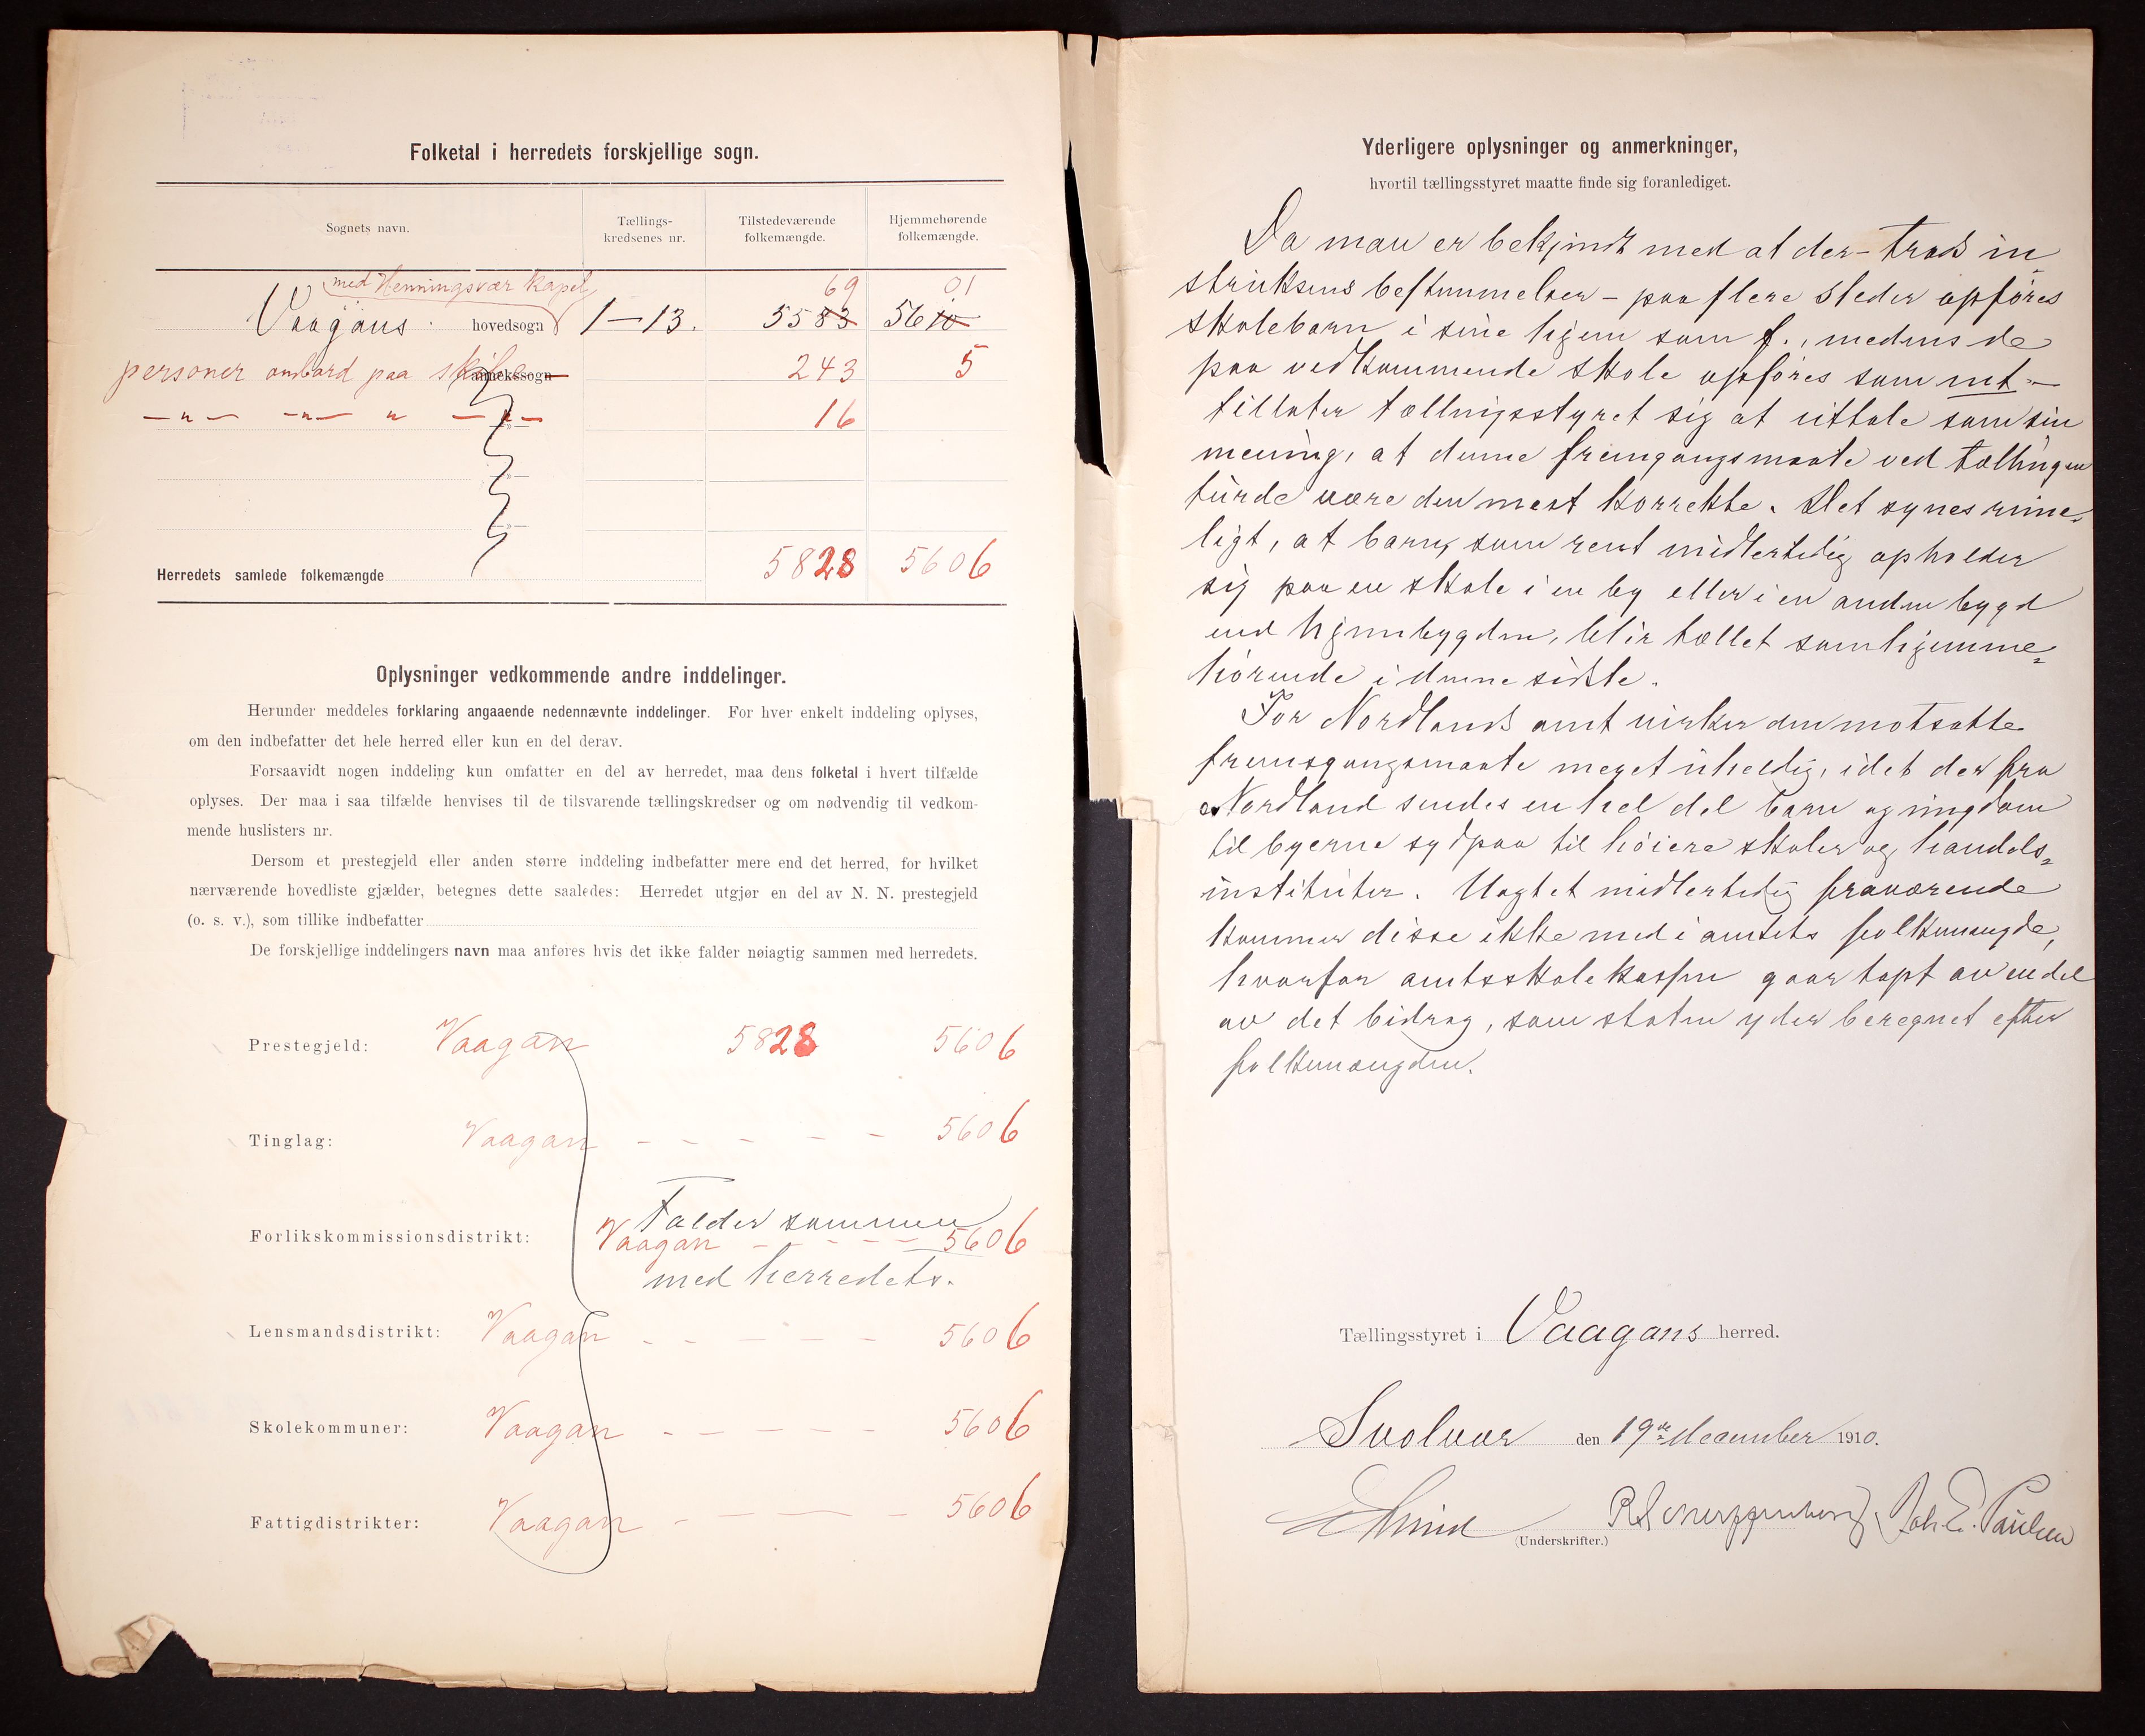 Folketal i herredets forskjellige sogn.
Sognets navn.
Tællings-
kredsenes nr.
Tilstedeværende
folkemængde.
Hjemmehørende
folkemængde.
med Henningsvær kapel
69 01
Vaagans hovedsogn 1-13. 5583 5610
personer ombord paa skibe annekssogn 243 5
—"— —"— " —"— 16
Herredets samlede folkemængde 5828 5606
Oplysninger vedkommende andre inddelinger.
Herunder meddeles forklaring angaaende nedennævnte inddelinger. For hver enkelt inddeling oplyses,
om den indbefatter det hele herred eller kun en del derav.
Forsaavidt nogen inddeling kun omfatter en del av herredet, maa dens folketal i hvert tilfælde
oplyses. Der maa i saa tilfælde henvises til de tilsvarende tællingskredser og om nødvendig til vedkom-
mende huslisters nr.
Dersom et prestegjeld eller anden større inddeling indbefatter mere end det herred, for hvilket
nærværende hovedliste gjælder, betegnes dette saaledes: Herredet utgjør en del av N. N. prestegjeld
(o. s. v.), som tillike indbefatter
De forskjellige inddelingers navn maa anføres hvis det ikke falder nøiagtig sammen med herredets.
Prestegjeld: Vaagan 5828 5606
Tinglag: Vaagan - - - - - 5606
Falder sammen
Forlikskommissionsdistrikt: Vaagan - - - - 5606
med herredets.
Lensmandsdistrikt: Vaagan - - - - - 5606
Skolekommuner: Vaagan - - - - - 5606
Fattigdistrikter: Vaagan - - - - 5606
Yderligere oplysninger og anmerkninger,
hvortil tællingsstyret maatte finde sig foranlediget.
Da man er bekjendt med at der - trods in
struksens bestemmelser - paa flere steder opføres
skolebarn i sine hjem som f., medens de
paa vedkommende skole opføres som mt -
tillater tællingsstyret sig at uttale som sin
mening, at denne fremgangsmaate ved tællingen
turde være den mest korrekte. Det synes rime-
ligt, at barn, som rent midlertidig opholder
sig paa en skole i en by eller i en anden bygd
end hjembygden, blir tællet som hjemme=
hørende i denne sidste.
For Nordlands amt virker den motsatte
fremgangsmaate meget uheldig, idet der fra
Nordland sendes en hel del barn og ungdom
til byerne sydpaa til høiere skoler og handels=
instituter. Uagtet midlertidig fraværende
kommer disse ikke med i amtets folkemængde,
hvorfor amtsskolekassen gaar tapt av en del
av det bidrag, som staten yder beregnet efter
folkemængden.
Tællingsstyret i Vaagans herred.
Svolvær den 19de december 1910.
(Underskrifter.)
Joh. E. Paulsen